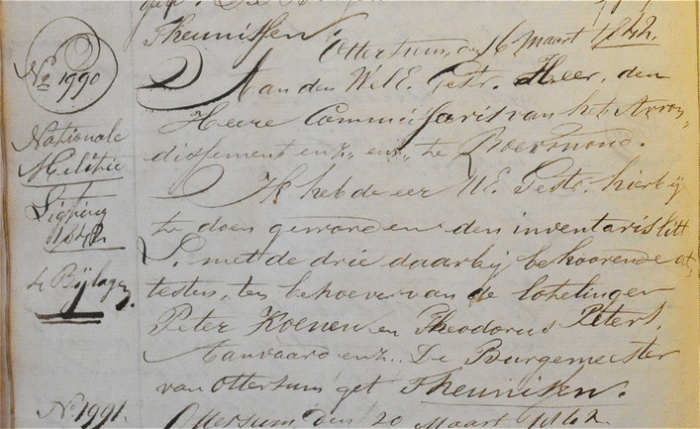 Theunissen.
Ottersum, den 16 Maart 1842.
No 1990
Aan den WelE. Gestr. Heer, den
Heere Commissaris van het Arron„
dissement enz„ enz„ te Roermond.
Nationale
Militie
Ligting
1842
4 Bijlagen
Ik heb de eer UE. Gestr. hierbij
te doen geworden den inventaris litt
S. met de drie daarbij behoorende at„
testen, ten behoeve van de lotelingen
Peter Koenen en Theodorus Peters.
Aanvaard enz.. De Burgemeester
van Ottersum get Theunissen.
No 1991.
Ottersum den 20 Maart 1842.